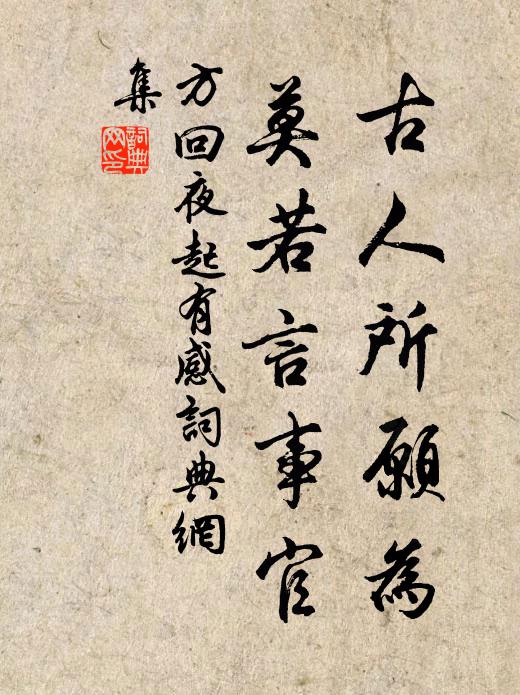 古人所願為
莫若言事官
方回夜起有感詞典網
集
詞典
网印